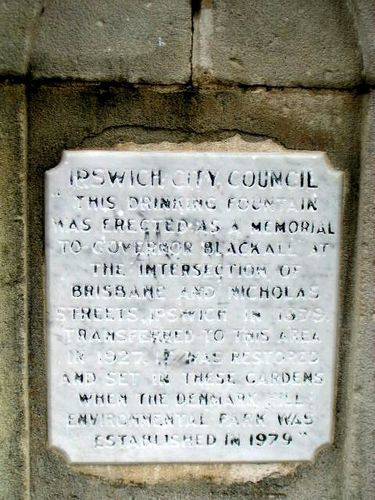 IPSWICH CITY COUNCIL
"THIS DRINKING FOUNTAIN
WAS ERECTED AS A MEMORIAL
TO GOVERNOR BLACKALL AT
THE INTERSECTION OF
BRISBANE AND NICHOLAS
STREETS, IPSWICH IN
TRANSFERRED TO THIS AREA
IN 1927. IT WAS RESTORED
AND SET IN THESE GARDENS
WHEN THE DENMARK HILL
ENVIRONMENTAL PARK WAS
ESTABLISHED IN 1979"